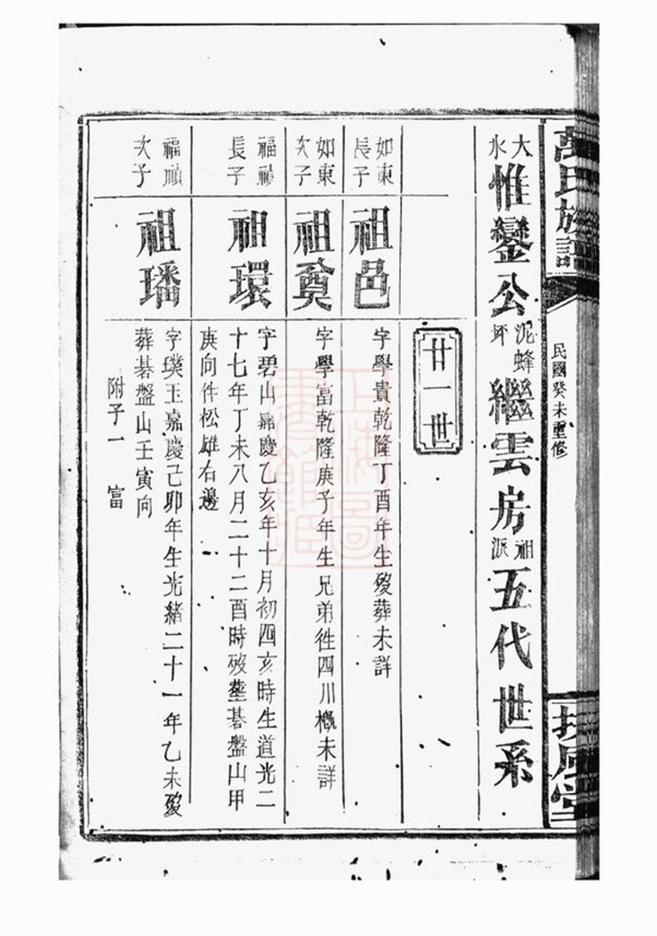 萬氏族譜
民國癸未重修
扶風堂
大水惟鑾公泥蜂坪繼雲房祖派五代世系
廿一世
如東長子
祖邑
字學貴乾隆丁酉年生殁葬未詳
如東次子
祖奠
字學富乾隆庚子年生兄弟徃四川概未詳
福禎長子
祖環
字碧山嘉慶乙亥年十月初四亥時生道光二
十七年丁未八月二十二酉時殁塟碁盤山甲
庚向件松雄右邊
福禎次子
祖璠
字璞玉嘉慶己卯年生光緒二十一年乙未殁
葬碁盤山壬寅向
附子一 富